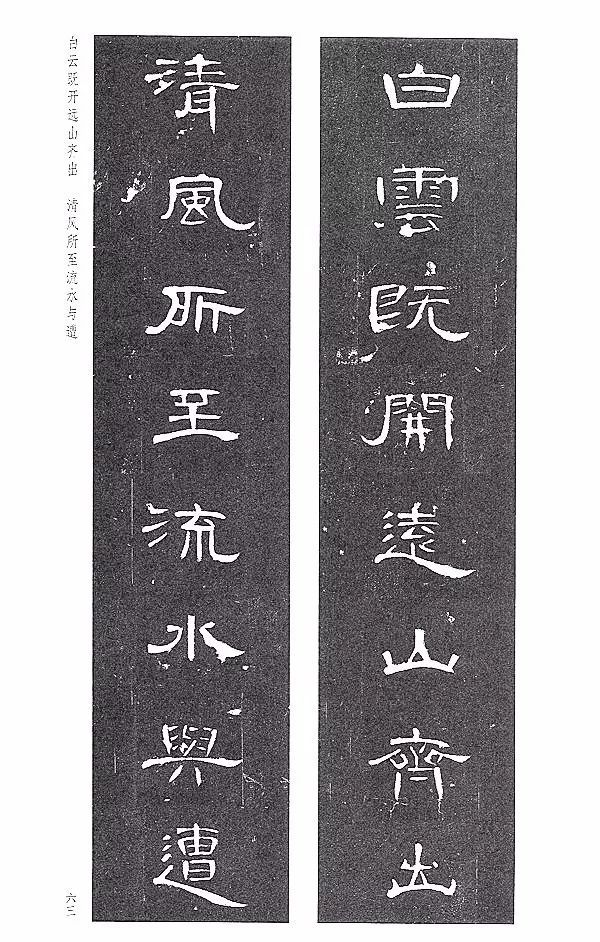 白雲既開遠山齊出
清風所至流水與遭
白云既开远山齐出　清风所至流水与遭
六三